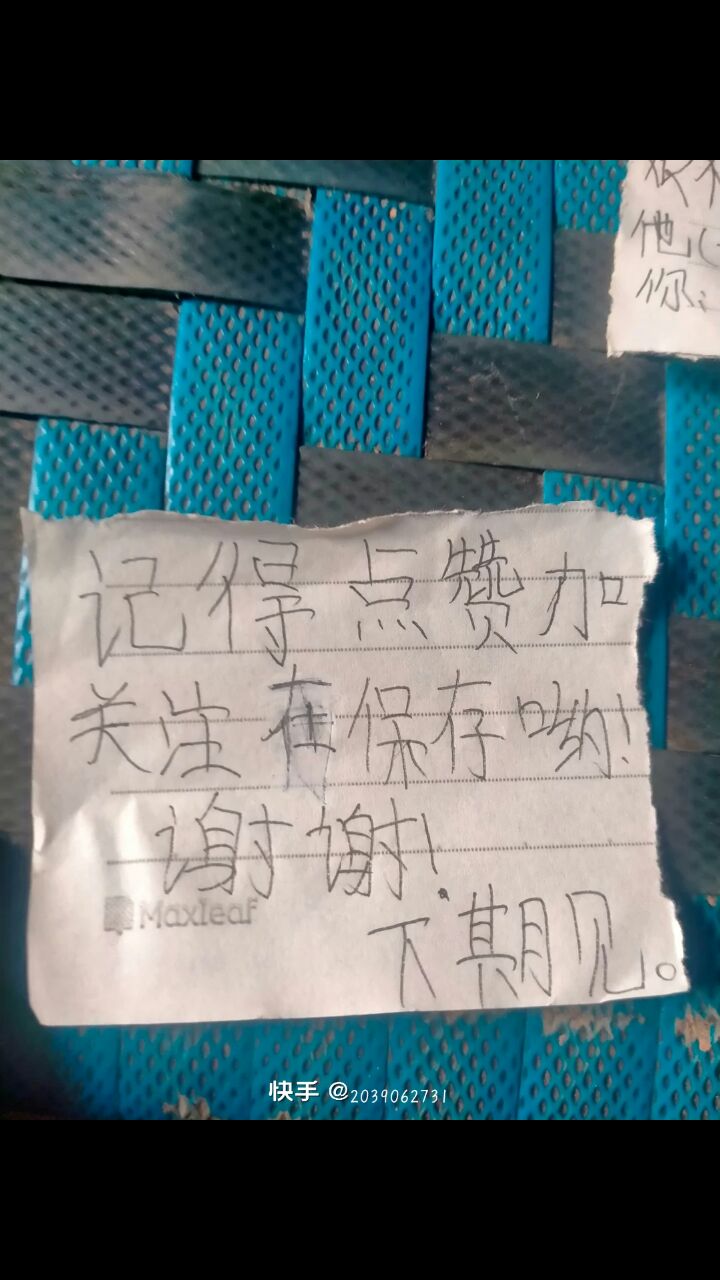 他
你
记得点赞加
关注在保存哟!
谢谢!
Maxleaf
下期见。
快手 @2039062731